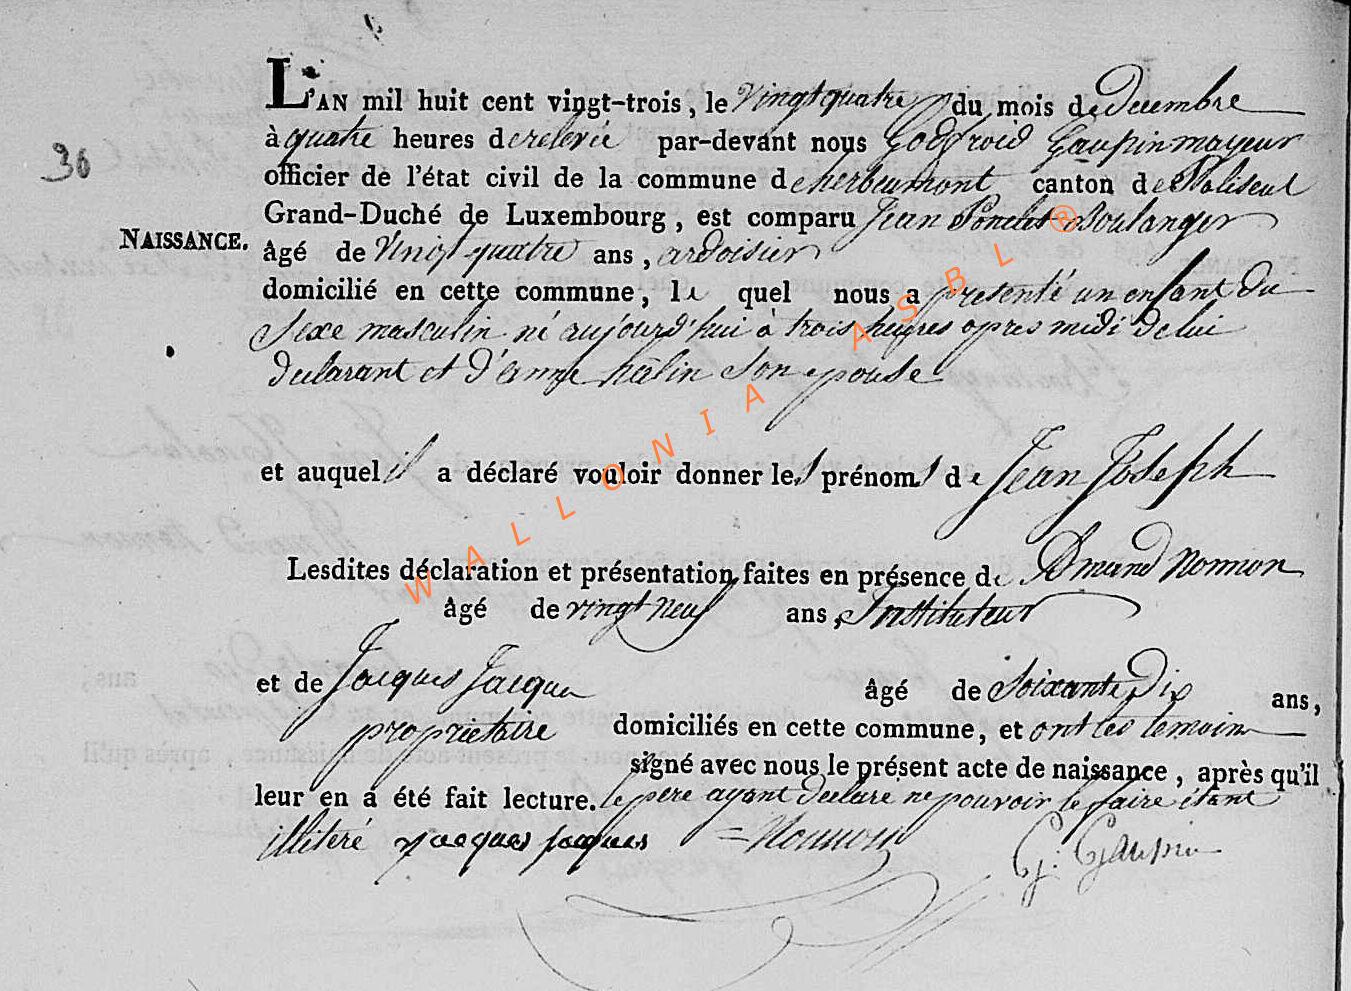 L'AN mil huit cent vingt-trois, le vingt quatre du mois de decembre
à quatre heures de relevée par-devant nous Godfroid Gaupin mayeur
officier de l'état civil de la commune de herbeumont canton de Paliseul
Grand-Duché de Luxembourg, est comparu Jean Poncelet Boulanger
NAISSANCE.
âgé de Vingt quatre ans, ardoisier
domicilié en cette commune, le quel nous a presenté un enfant du
Sexe masculin né aujourd'hui à trois heures apres midi de lui
declarant et d'anne halin son epouse
et auquel il a déclaré vouloir donner les prénoms de Jean Joseph
Lesdites déclaration et présentation faites en présence de Amand Nonnon
âgé de vingt neuf ans, Instituteur
et de Jacques Jacques âgé de Soixante Dix ans,
proprietaire domiciliés en cette commune, et ont les temoins
signé avec nous le présent acte de naissance, après qu'il
leur en a été fait lecture. le pere ayant declaré ne pouvoir le faire étant
illiteré Jacques Jacques = Nonnon G: Gaupin
36
WALLONIA ASBL ®